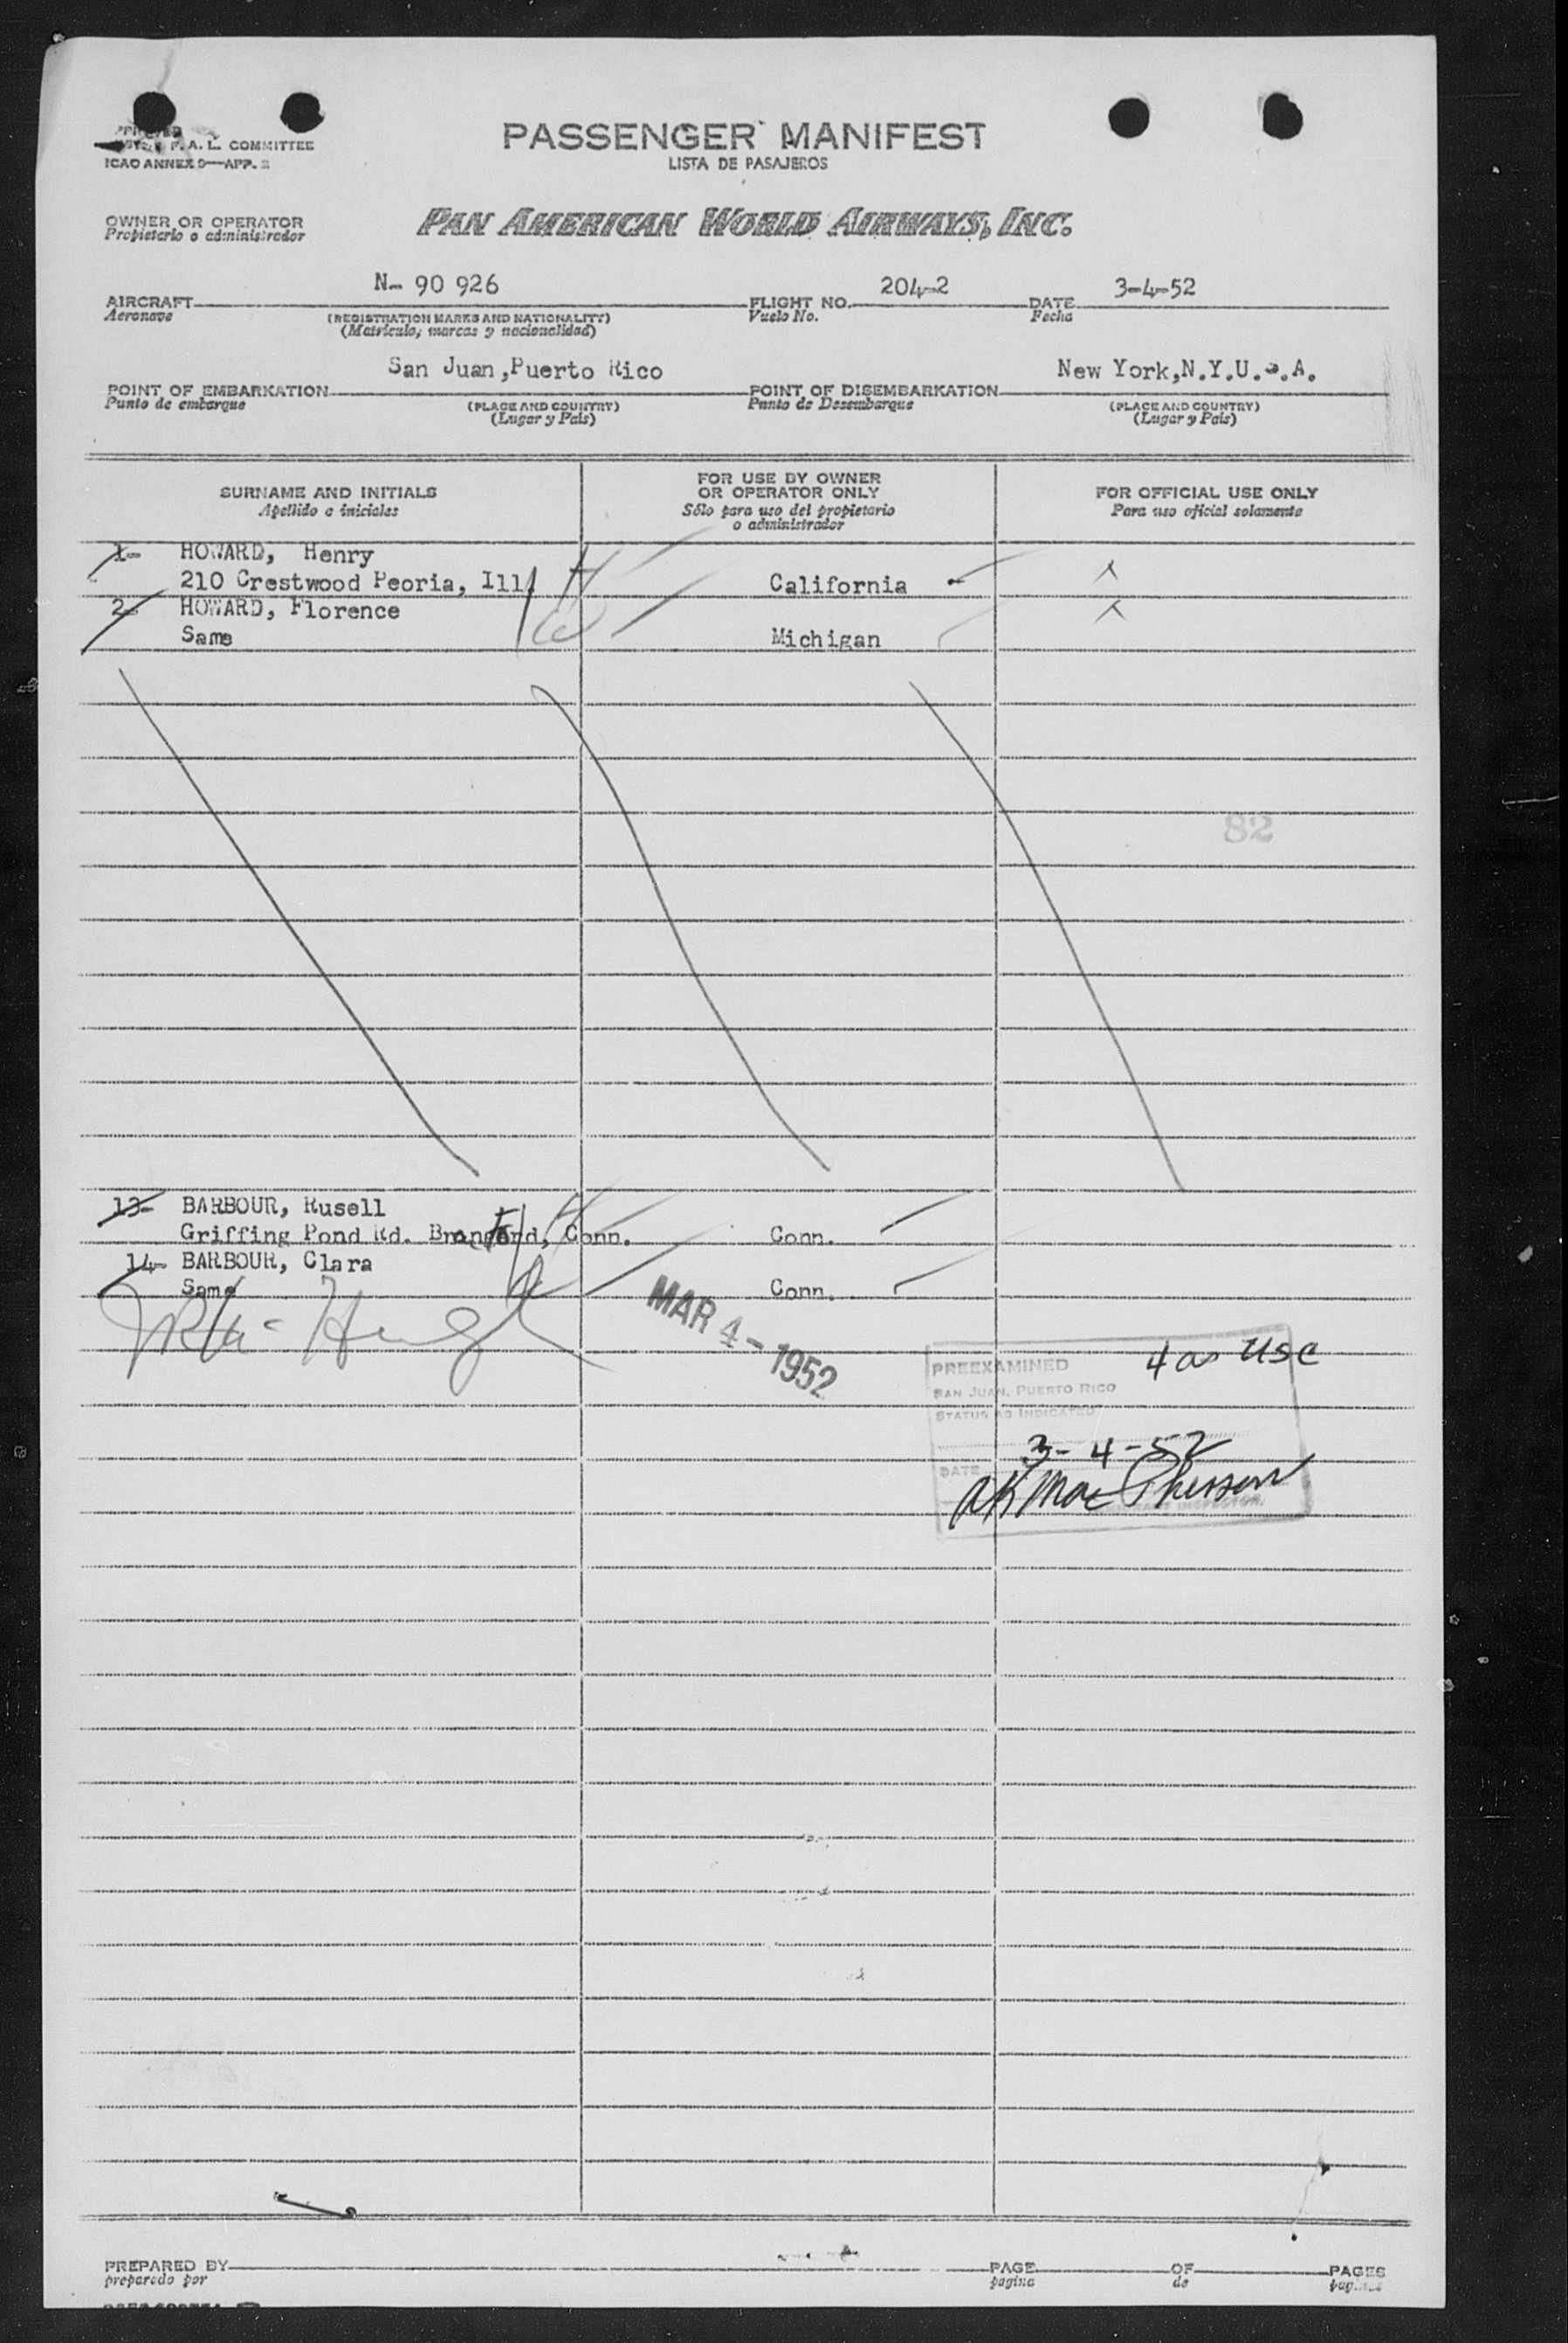 F. A. L. COMMITTEE
ICAO ANNEX 9—APP. 2
PASSENGER MANIFEST
LISTA DE PASAJEROS
OWNER OR OPERATOR
Propietario o administrador
PAN AMERICAN WORLD AIRWAYS, INC.
N- 90 926
204-2
3-4-52
AIRCRAFT
FLIGHT NO.
DATE
Aeronave
(REGISTRATION MARKS AND NATIONALITY)
Vuelo No.
Fecha
(Matrícula, marcas y nacionalidad)
San Juan,Puerto Rico
New York,N.Y.U.S.A.
POINT OF EMBARKATION
POINT OF DISEMBARKATION
Punto de embarque
(PLACE AND COUNTRY)
Punto de Desembarque
(PLACE AND COUNTRY)
(Lugar y País)
(Lugar y País)
SURNAME AND INITIALS
Apellido e iniciales
FOR USE BY OWNER
OR OPERATOR ONLY
Sólo para uso del propietario
o administrador
FOR OFFICIAL USE ONLY
Para uso oficial solamente
1- HOWARD, Henry
210 Crestwood Peoria, Ill. California
2 HOWARD, Florence
Same Michigan
82
13- BARBOUR, Rusell
Griffing Pond Rd. Branford, Conn. Conn.
14- BARBOUR, Clara
Same Conn.
MAR 4 - 1952
4 as USC
PREEXAMINED
SAN JUAN, PUERTO RICO
STATUS AS INDICATED
3-4-52
DATE
PREPARED BY
PAGE
OF
PAGES
preparado por
pagina
de